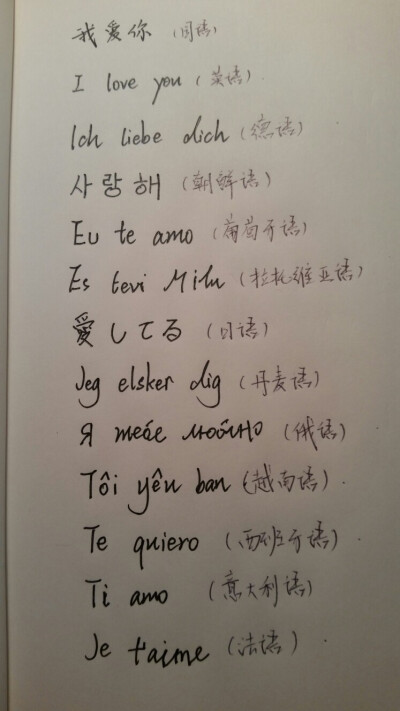 我爱你（国语）
I love you（英语）
Ich liebe dich（德语）
사랑해（朝鲜语）
Eu te amo（葡萄牙语）
Es tevi Milu（拉托维亚语）
愛してる（日语）
Jeg elsker dig（丹麦语）
Я тебе люблю（俄语）
Tôi yêu ban（越南语）.
Te quiero（西班牙语）.
Ti amo（意大利语）
Je t'aime（法语）.